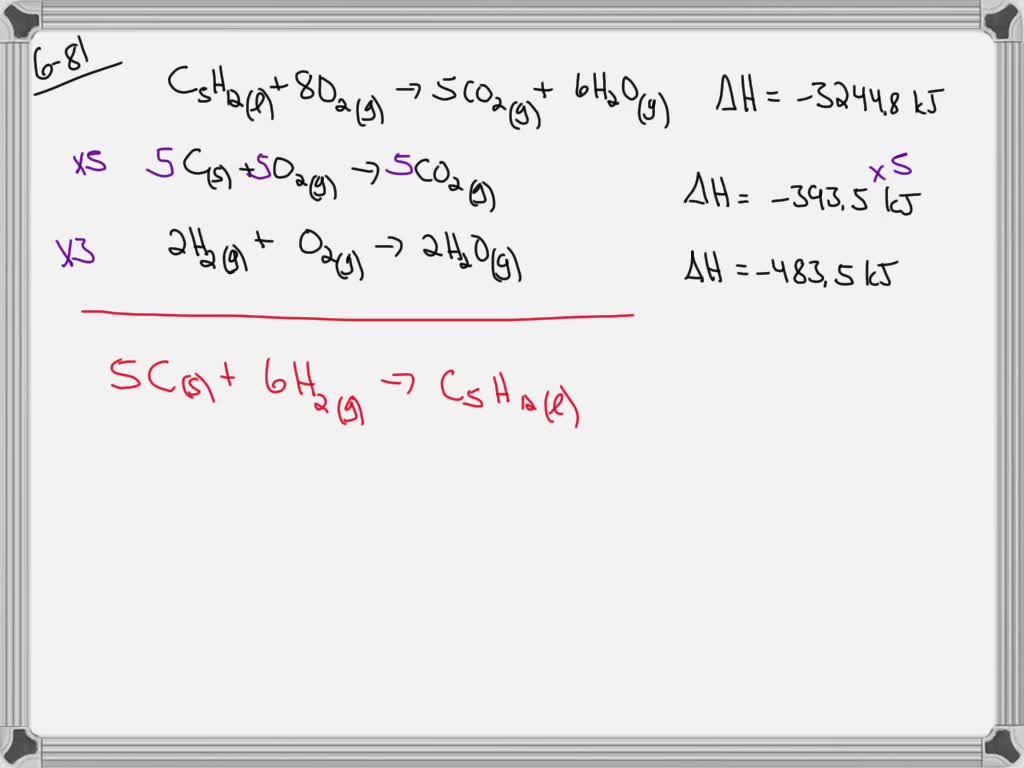 6-81
C₅H₁₂(l) + 8O₂(g) → 5CO₂(g) + 6H₂O(g) ΔH = -3244.8 kJ
x5 5C(s) + 5O₂(g) → 5CO₂(g) ΔH = -393.5 kJ x5
x3 2H₂(g) + O₂(g) → 2H₂O(g) ΔH = -483.5 kJ
5C(s) + 6H₂(g) → C₅H₁₂(l)